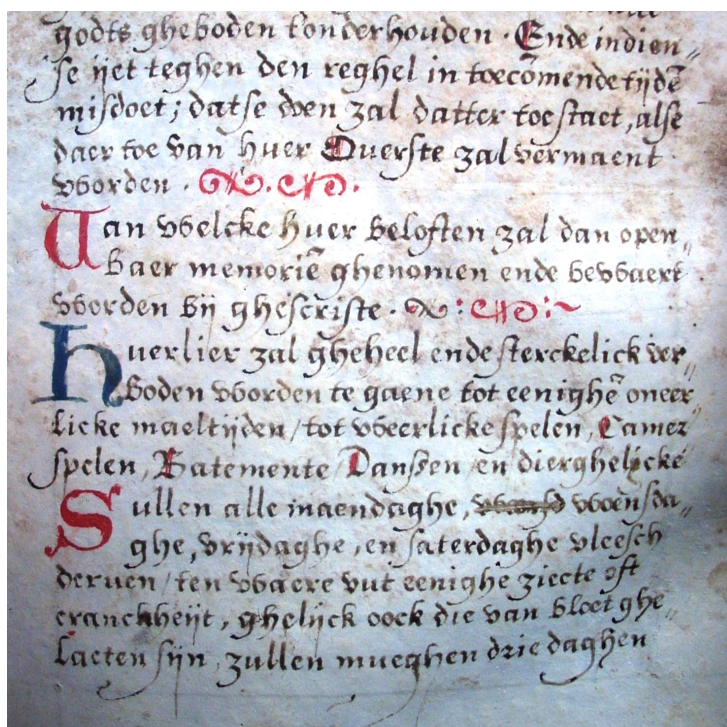 godts gheboden tonderhouden · Ende indien„
se yet teghen den reghel in toecōmende tijdē
misdoet; datse doen zal datter toe staet, alse
daer toe van huer Ouerste zal vermaent
vvorden ·
Van vvelcke huer beloften zal dan open„
baer memoriē ghenomen ende bevvaert
vvorden bij ghescrifte ·
huerlier zal gheheel ende sterckelick ver„
boden vvorden te gaene tot eenighē oneer„
licke maeltijden / tot vveerlicke spelen, Camer
spelen, Batemente / Danssen / en dierghelijcke
Sullen alle maendaghe, vvoensda„
ghe, vrijdaghe, en saterdaghe vleesch
deruen / ten vvaere vut eenighe ziecte oft
cranckheijt, ghelijck oock die van bloet ghe„
laeten sijn, zullen mueghen drie daghen